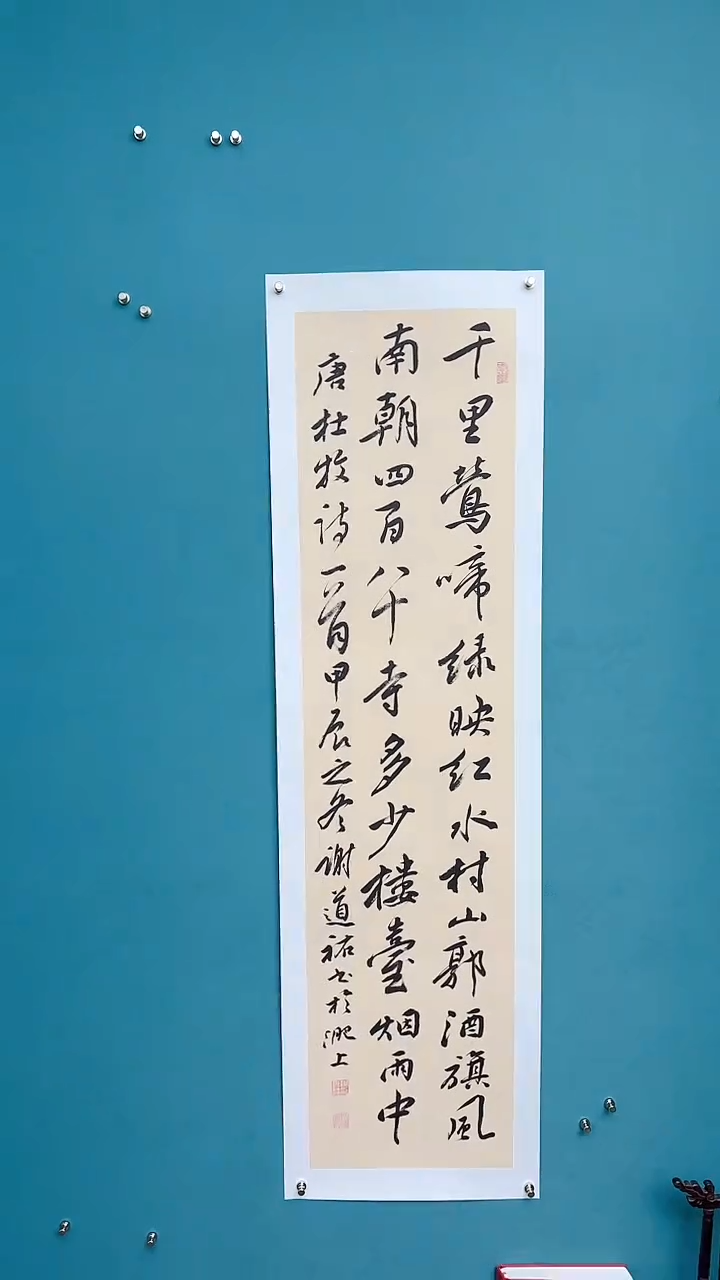 千里莺啼绿映红水村山郭酒旗风
南朝四百八十寺多少楼臺烟雨中
唐杜牧诗一首甲辰之冬谢道祐书于淝上